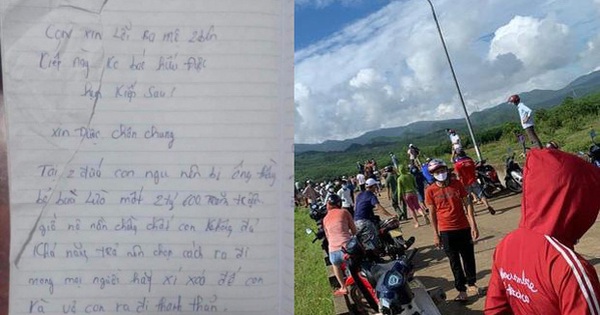 Con xin lỗi ba mẹ 2 bên
Kiếp này ko báo hiếu được
hẹn kiếp sau!
xin được chôn chung
Tại 2 đứa con ngu nên bị ông thầy
bà bói lừa mất 2 tỷ 800 trăm triệu
giờ nợ nần chồng chất con không đủ
khả năng trả nên chọn cách ra đi
mong mọi người hãy xí xoá để con
và vợ con ra đi thanh thản.